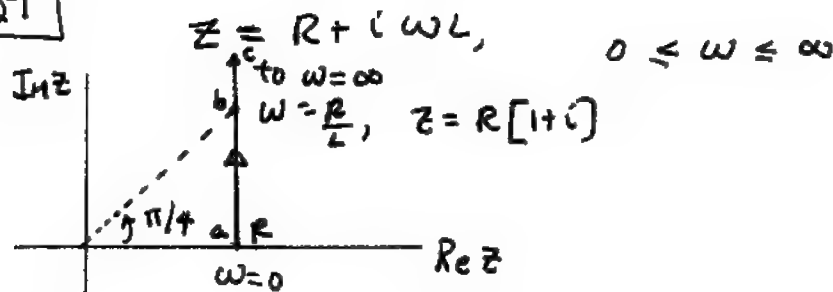 Z = R + i ω L, 0 ≤ ω ≤ ∞
Im z
c to ω = ∞
b ω = R/L, z = R[1+i]
π/4 a R
Re z
ω = 0